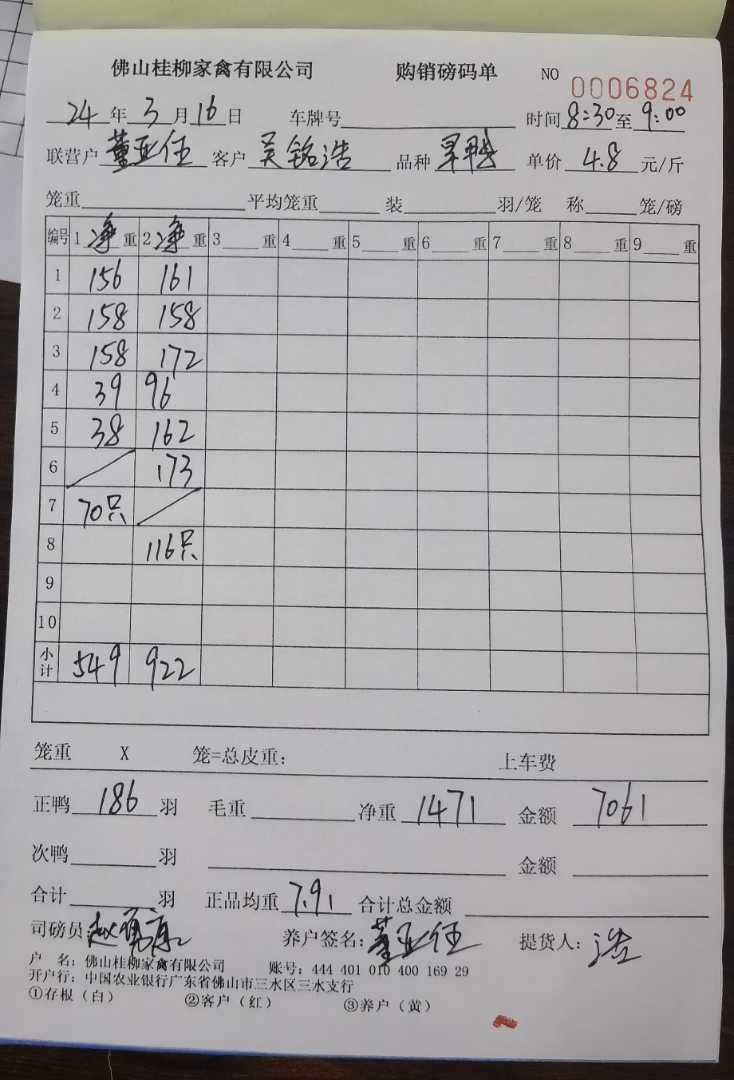 佛山桂柳家禽有限公司 购销磅码单 NO 0006824
24 年 3 月 16 日 车牌号 时间 8:30 至 9:00
联营户 董亚任 客户 吴铭浩 品种 旱鸭 单价 4.8 元/斤
笼重 平均笼重 装 羽/笼 称 笼/磅
编号 1 净 重 2 净 重 3 重 4 重 5 重 6 重 7 重 8 重 9 重
1 156 161
2 158 158
3 158 172
4 39 96
5 38 162
6 173
7 70只
8 116只
9
10
小计 549 922
笼重 X 笼=总皮重: 上车费
正鸭 186 羽 毛重 净重 1471 金额 7061
次鸭 羽 金额
合计 羽 正品均重 7.91 合计总金额
司磅员: 养户签名: 董亚任 提货人: 浩
户 名: 佛山桂柳家禽有限公司 账号: 444 401 010 400 169 29
开户行: 中国农业银行广东省佛山市三水区三水支行
①存根(白) ②客户(红) ③养户(黄)